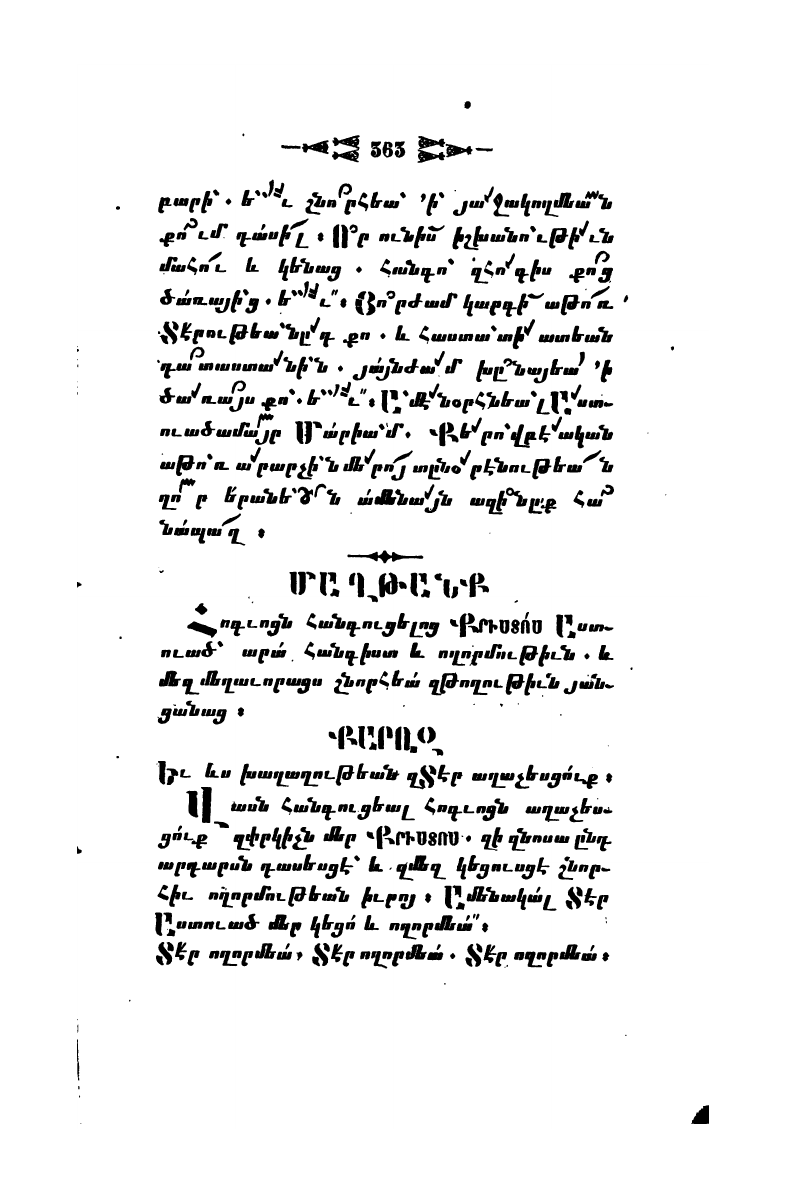 363
բարի՝ . ե՝ւ շնորհեա՝ ՚ի՝ յաջակողմեան
քում դասիլ ։ Որ ունիս իշխանո՝ւթիւն
մահու և կենաց . Հանգո՝ զհոգիս քոց
ծառայի՝ց . ե՝ւ ։ Յորժամ կարգի աթոռ
Տէրութեա՝նդ քո . և Հաստա՝տի ատեան
դատաստանի՝ն . յայնժամ խընայեա ՚ի
ծառայս քո՝ . ե՝ւ ։ Ը՝մէնօրհնեա՝լ Աստ-
ուածամայր Մարիա՝մ . Քերո՝վբէական
աթո՝ռ արարչի՝ն մերոյ տընօրէնութեա՝ն
ղո ր երանե՝ն ամենայն ազինք հա
նապաղ ։
ՄԱՂԹԱՆՔ
Հոգւոցն հանգուցելոց ՔՐԻՍՏՈՍ Աստ-
ուած՝ արա հանգիստ և ողորմութիւն . և
մեզ մեղաւորացս շնորհեա զթողութիւն յան-
ցանաց ։
ՔԱՐՈԶ
Եւ ևս խաղաղութեան զՏէր աղաչեսցուք ։
Վասն հանգուցեալ հոգւոցն աղաչես-
ցուք՝ զփրկիչն մեր ՔՐԻՍՏՈՍ . զի զնոսա ընդ
արդարսն դասեսցէ՝ և զմեզ կեցուսցէ շնոր-
հիւ ողորմութեան իւրոյ ։ Ամենակալ Տէր
Աստուած մեր կեցո և ողորմեա՛՛ ։
Տէր ողորմեա, Տէր ողորմեա . Տէր ողորմեա ։